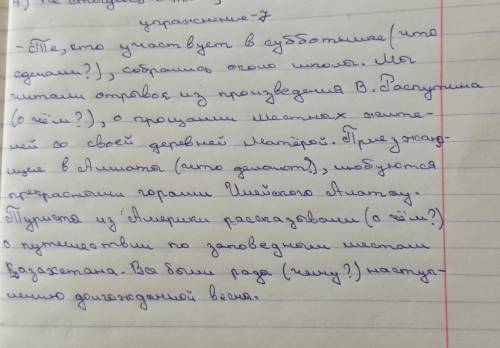 упражнение-7
-Те, кто участвует в субботнике (что
сделали?), собрались около школы. Мы
читали отрывок из произведения В. Распутина
(о чём?), о прощании местных жите-
лей со своей деревней Матёрой. Приезжаю-
щие в Алматы (что делают?), любуются
прекрасными горами Илейского Алатау.
Туристы из Америки рассказывали (о чём?)
о путешествии по заповедным местам
Казахстана. Все были рады (чему?) наступ-
лению долгожданной весны.